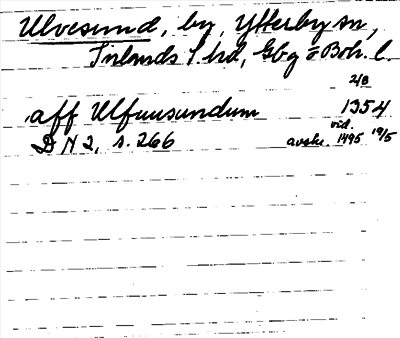 Ulvesund, by, Ytterby sn,
Inlands S. hd, Gbg o Boh. l.
2/8
aff Ulfuusundum 1354
DN 2, s. 266 avskr. vid. 1495 19/5